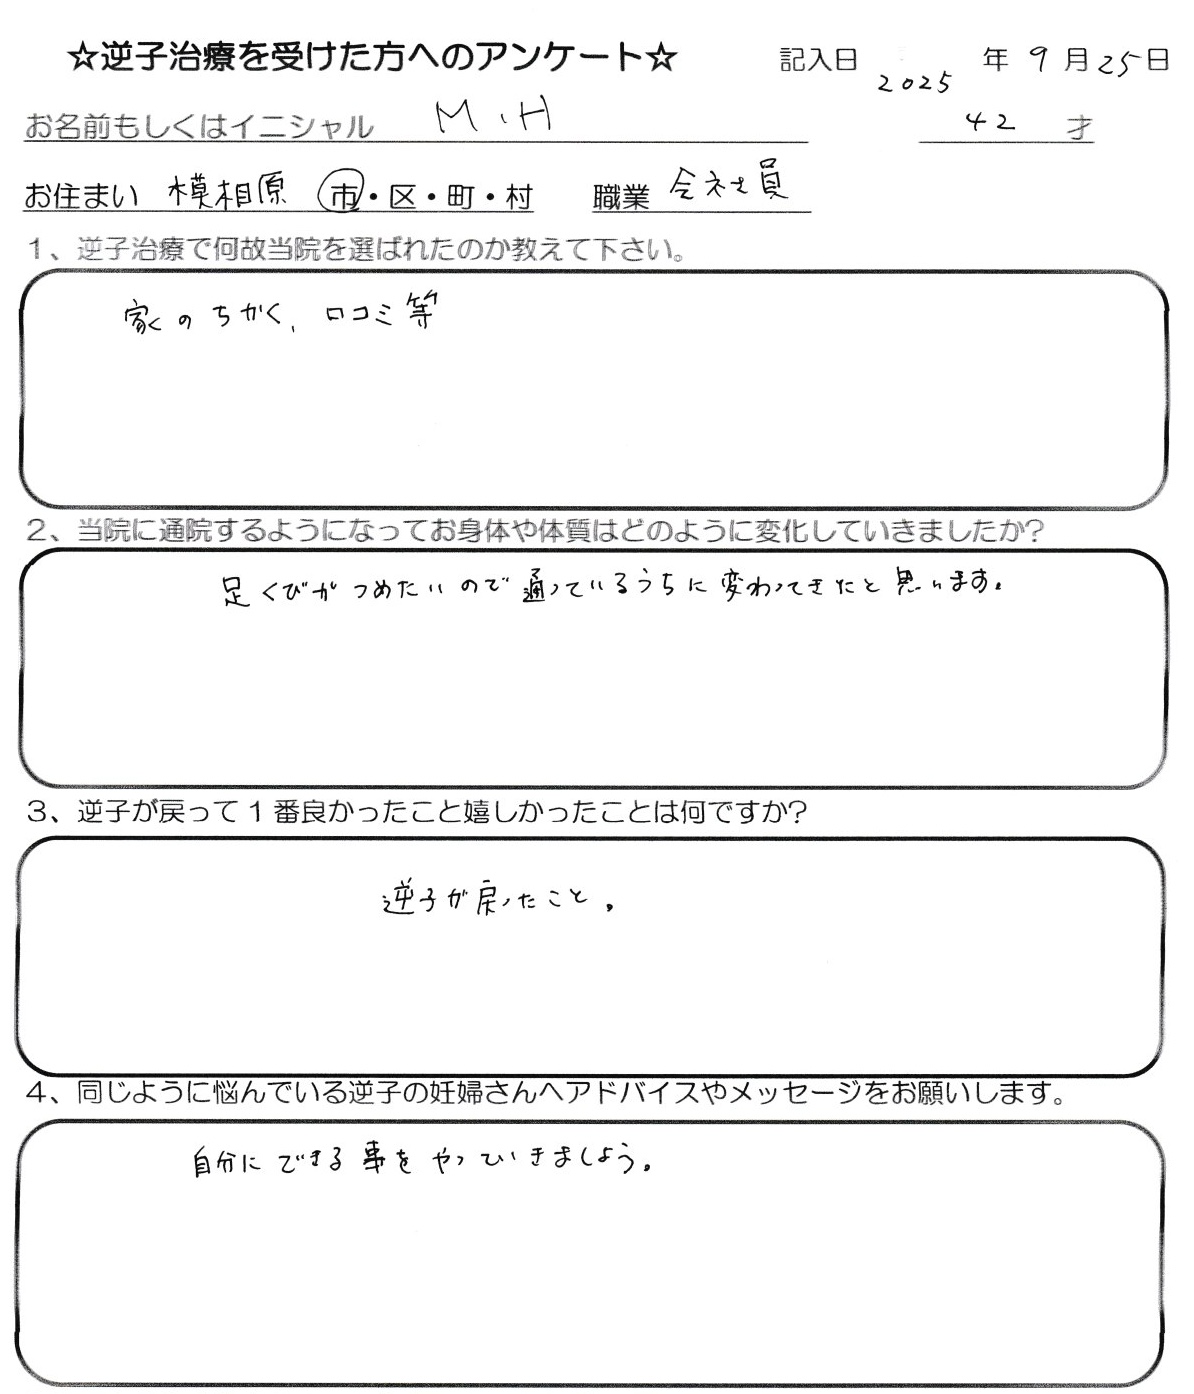 ☆逆子治療を受けた方へのアンケート☆ 記入日 2025 年 9 月 25 日
お名前もしくはイニシャル M.H 42 才
お住まい 模相原 市・区・町・村 職業 会社員
1、逆子治療で何故当院を選ばれたのか教えて下さい。
家のちかく、口コミ等
2、当院に通院するようになってお身体や体質はどのように変化していきましたか?
足くびがつめたいので通っているうちに変わってきたと思います。
3、逆子が戻って1番良かったこと嬉しかったことは何ですか?
逆子が戻ったこと。
4、同じように悩んでいる逆子の妊婦さんへアドバイスやメッセージをお願いします。
自分にできる事をやっていきましょう。